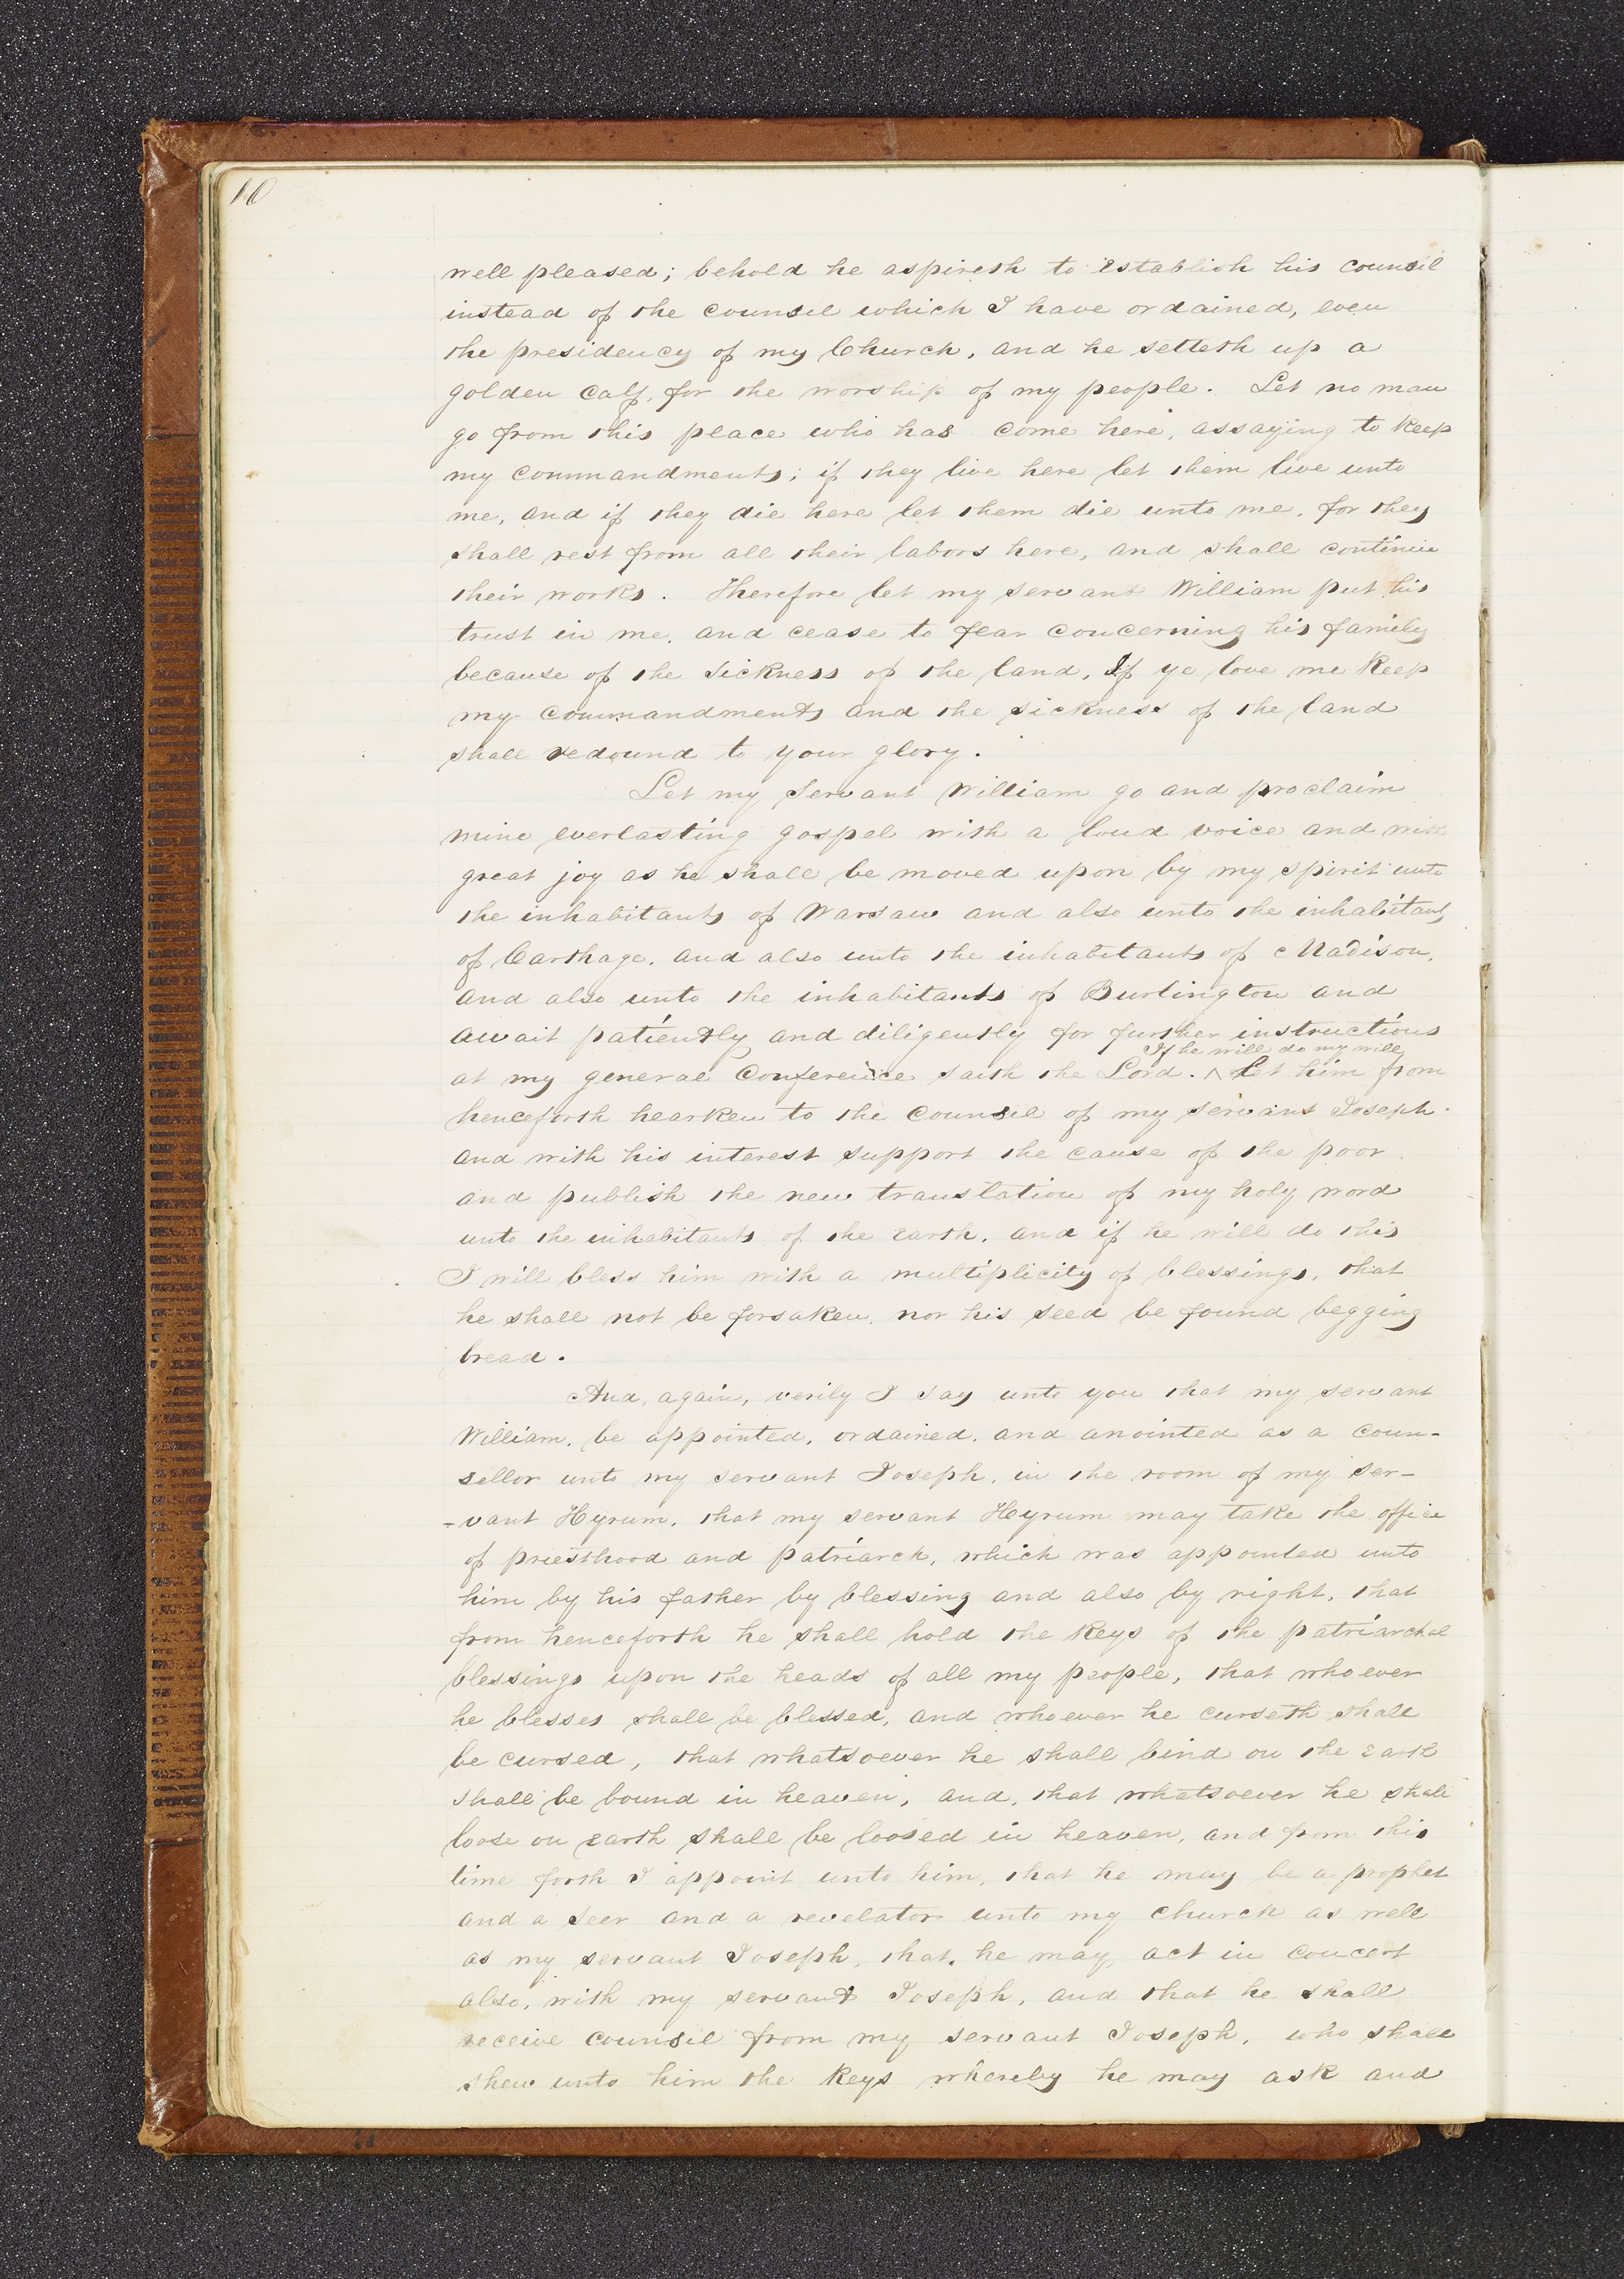 10
well pleased; behold he aspireth to establish his counsil
instead of the counsel which I have ordained, even
the presidency of my Church, and he setteth up a
golden calf, for the worship of my people. Let no man
go from this place who has come here, assaying to keep
my commandments; if they live here let them live unto
me, and if they die here let them die unto me, for they
shall rest from all their labors here, and shall continue
their works. Therefore let my servant William put his
trust in me, and cease to fear concerning his family
because of the sickness of the land, If ye love me keep
my commandments and the sickness of the land
shall redound to your glory.
Let my servant William go and proclaim
mine everlasting gospel with a loud voice and with
great joy as he shall be moved upon by my spirit unto
the inhabitants of Warsaw and also unto the inhabitants
of Carthage, and also unto the inhabitants of Madison,
and also unto the inhabitants of Burlington and
await patiently and diligently for further instructions
If he will do my will
at my general Conference saith the Lord. ^ Let him from
henceforth hearken to the counsel of my servant Joseph
and with his interest support the cause of the poor
and publish the new translation of my holy word
unto the inhabitants of the earth, and if he will do this
I will bless him with a multiplicity of blessings, that
he shall not be forsaken, nor his seed be found begging
bread.
And, again, verily I say unto you that my servant
William, be appointed, ordained, and anointed as a coun-
sellor unto my servant Joseph, in the room of my ser-
-vant Hyrum, that my servant Hyrum may take the office
of priesthood and patriarch, which was appointed unto
him by his father by blessing and also by right, that
from henceforth he shall hold the keys of the patriarchal
blessings upon the heads of all my people, that whoever
he blesses shall be blessed, and whoever he curseth shall
be cursed, that whatsoever he shall bind on the earth
shall be bound in heaven, and, that whatsoever he shall
loose on earth shall be loosed in heaven, and from this
time forth I appoint unto him, that he may be a prophet
and a seer and a revelator unto my church as well
as my servant Joseph, that, he may, act in concert
also, with my servant Joseph, and that he shall
receive counsel from my servant Joseph, who shall
shew unto him the keys whereby he may ask and